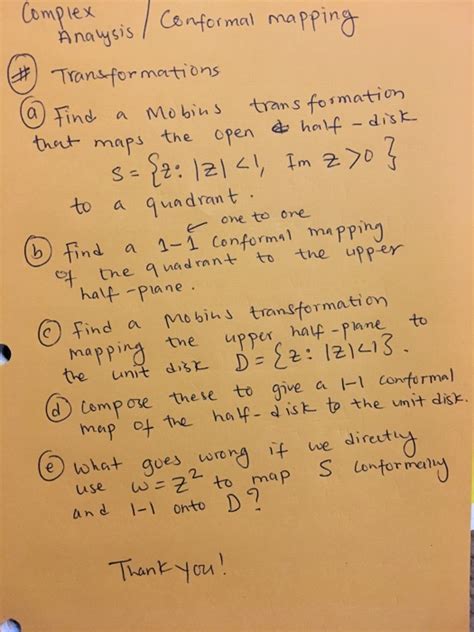 Complex
Analysis / Conformal mapping
# Transformations
(a) Find a Mobius transformation
that maps the open half-disk
S = {z: |z| < 1, Im z > 0}
to a quadrant.
one to one
(b) find a 1-1 conformal mapping
of the quadrant to the upper
half-plane.
(c) find a Mobius transformation
mapping the upper half-plane to
the unit disk D = {z: |z| < 1}.
(d) compose these to give a 1-1 conformal
map of the half-disk to the unit disk.
(e) what goes wrong if we directly
use w = z² to map S conformally
and 1-1 onto D?
Thank you!